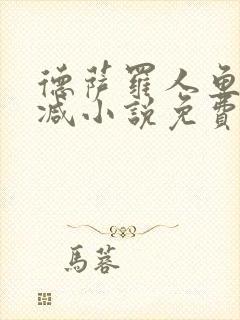 德薩羅人魚
減小說免費
馬蓉